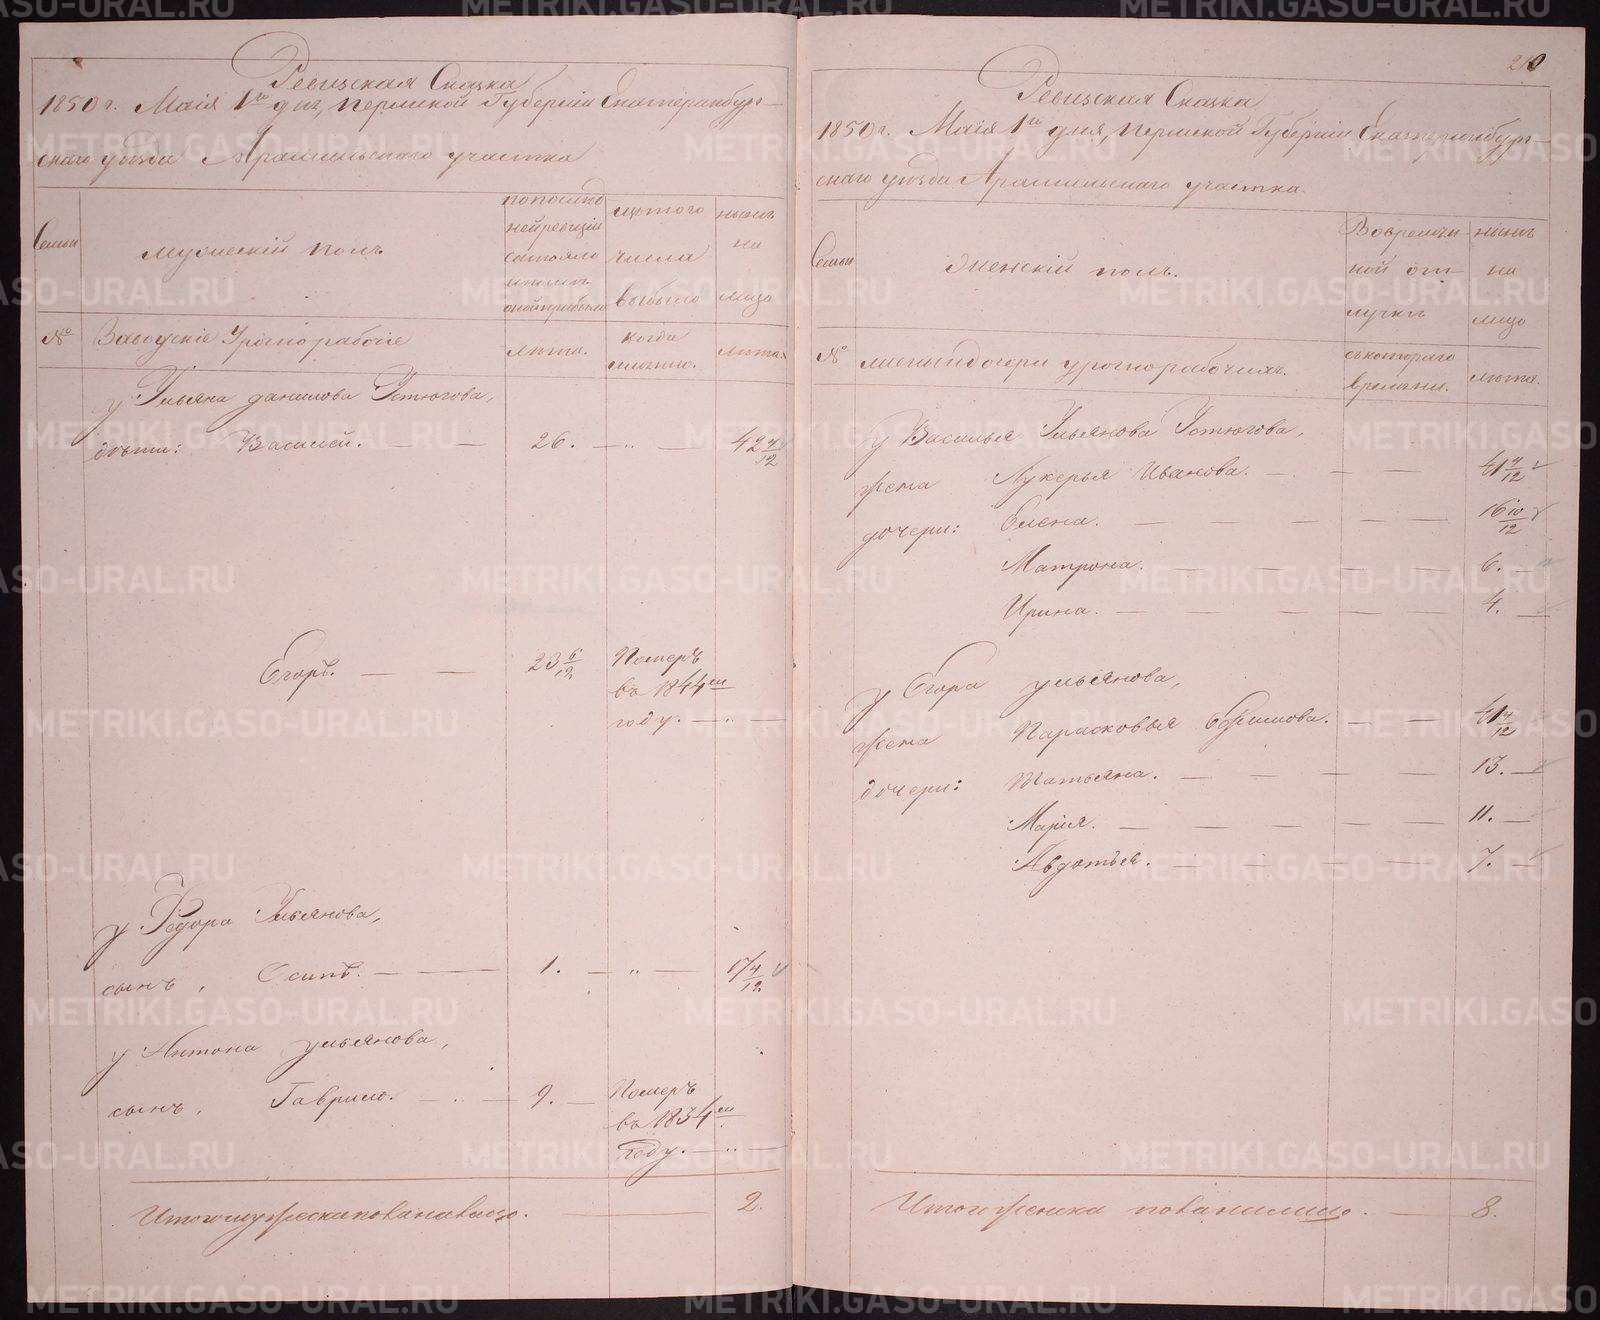 Ревизская Сказка
1850 г. Маія 1го дня, Пермской Губерніи Екатеринбург-
скаго уѣзда Арамильскаго участка
Семьи
мужескій полъ
по послѣд
ней ревизіи
состояло
и послѣ
оной прибыло
изъ того
числа
выбыло
нынѣ
на
лицо
№
Заводскіе Урочнорабочіе
лѣта.
когда
именно.
лѣта.
у Ульяна Данилова Устюгова,
дѣти: Василей. 26. 42 4/12
Егоръ. 23 6/12 Померъ
въ 1844мъ
году.
у Федора Ульянова,
сынъ, Осипъ. 1. 17 4/12
у Антона Ульянова,
сынъ, Гаврило. 9. Померъ
въ 1834мъ
году.
Итого мужеска пола налицо. 2.
210
Ревизская Сказка
1850 г. Маія 1го дня, Пермской Губерніи Екатеринбург-
скаго уѣзда Арамильскаго участка.
Семьи
Женскій полъ.
Во времян
ной от
лучкѣ
нынѣ
на
лицо
№
жены и дочери урочнорабочихъ.
съ котораго
времени.
лѣта.
у Василья Ульянова Устюгова,
жена Лукерья Иванова. 41 4/12
дочери: Елена. 16 10/12
Матрона. 6.
Ирина. 4.
у Егора Ульянова,
жена Парасковья Ефимова. 41 4/12
дочери: Татьяна. 13.
Марія. 11.
Авдотья. 7.
Итого женска пола налицо. 8.
METRIKI.GASO-URAL.RU